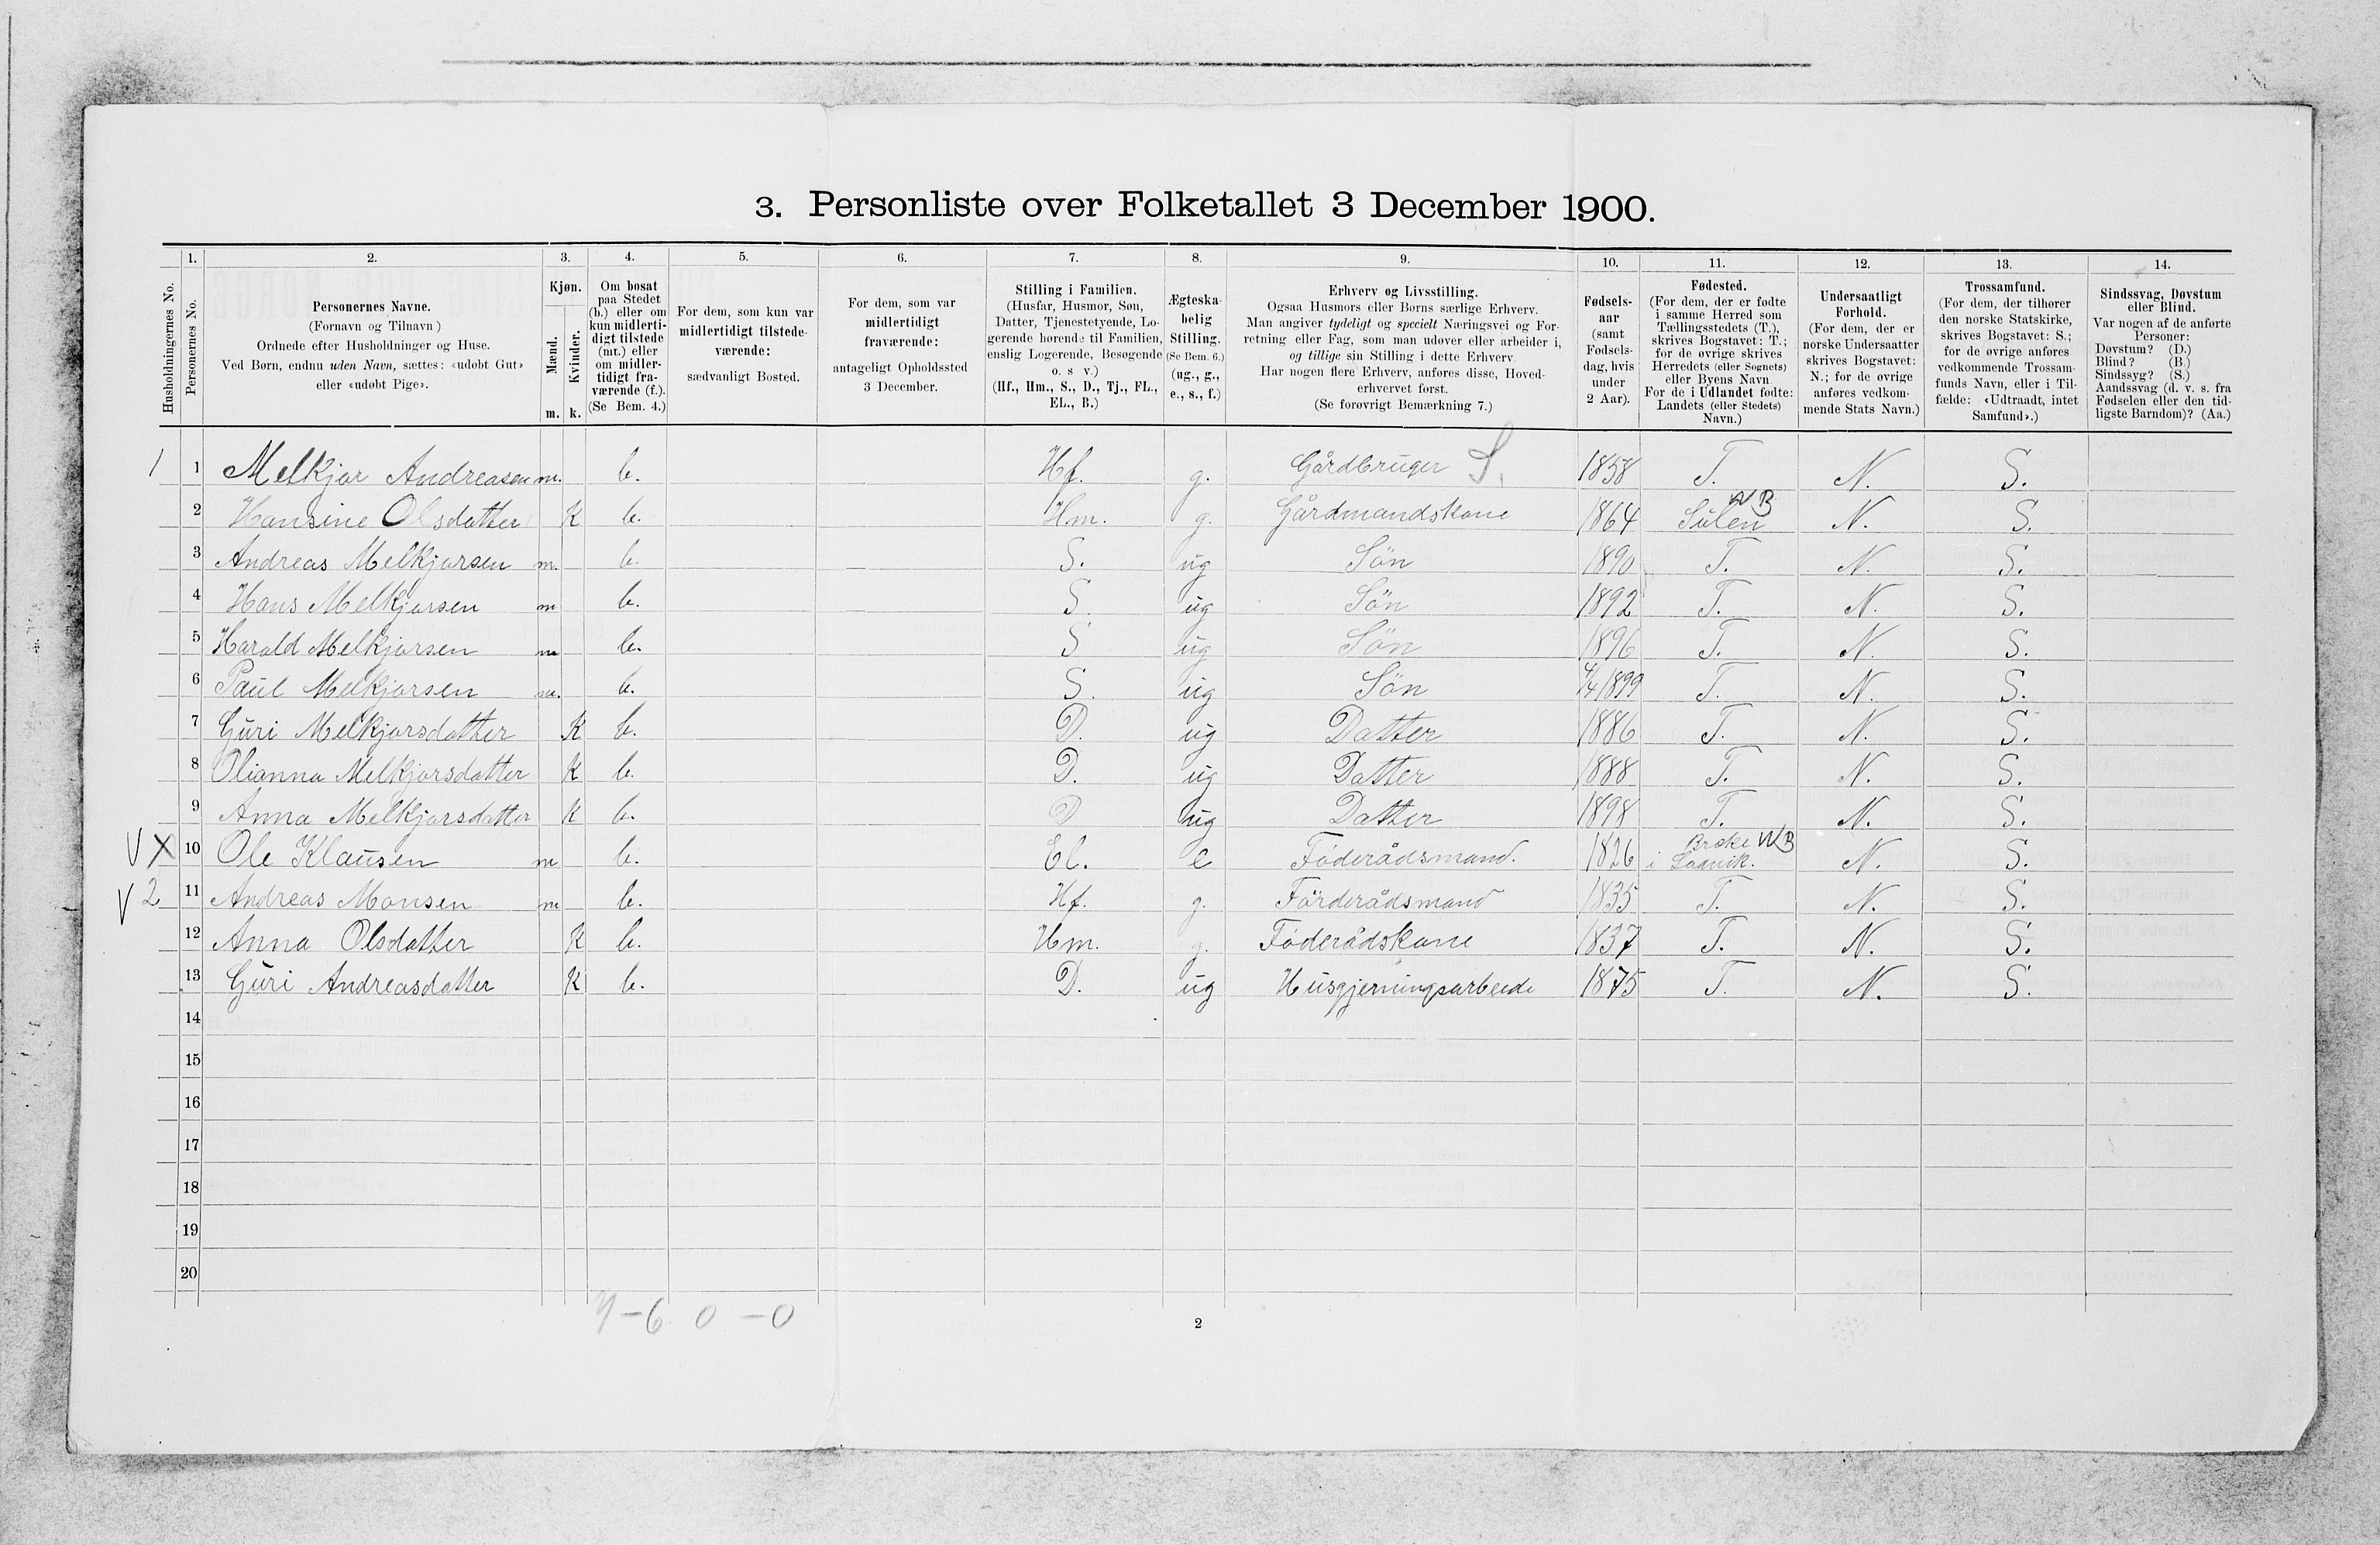 3. Personliste over Folketallet 3 December 1900.
1. 2. 3. 4. 5. 6. 7. 8. 9. 10. 11. 12. 13. 14.
Husholdningernes No.
Personernes No.
Personernes Navne.
(Fornavn og Tilnavn)
Ordnede efter Husholdninger og Huse.
Ved Børn, endnu uden Navn, sættes: «udøbt Gut»
eller «udøbt Pige».
Kjøn.
Mænd.
Kvinder.
m. k.
Om bosat
paa Stedet
(b.) eller om
kun midlerti-
digt tilstede
(mt.) eller
om midler-
tidigt fra-
værende (f.).
(Se Bem. 4.)
For dem, som kun var
midlertidigt tilstede-
værende:
sædvanligt Bosted.
For dem, som var
midlertidigt
fraværende:
antageligt Opholdssted
3 December.
Stilling i Familien.
(Husfar, Husmor, Søn,
Datter, Tjenestetyende, Lo-
gerende hørende til Familien,
enslig Logerende, Besøgende
o. s. v.)
(Hf., Hm., S., D., Tj., FL.,
EL., B.)
Ægteska-
belig
Stilling.
(Se Bem. 6.)
(ug., g.,
e., s., f.)
Erhverv og Livsstilling.
Ogsaa Husmors eller Børns særlige Erhverv.
Man angiver tydeligt og specielt Næringsvei og For-
retning eller Fag, som man udøver eller arbeider i,
og tillige sin Stilling i dette Erhverv.
Har nogen flere Erhverv, anføres disse, Hoved-
erhvervet først.
(Se forøvrigt Bemærkning 7.)
Fødsels-
aar
(samt
Fødsels-
dag, hvis
under
2 Aar).
Fødested.
(For dem, der er fødte
i samme Herred som
Tællingsstedets (T.),
skrives Bogstavet: T.;
for de øvrige skrives
Herredets (eller Sognets)
eller Byens Navn
For de i Udlandet fødte:
Landets (eller Stedets)
Navn.)
Undersaatligt
Forhold.
(For dem, der er
norske Undersaatter
skrives Bogstavet:
N.; for de øvrige
anføres vedkom-
mende Stats Navn.)
Trossamfund.
(For dem, der tilhører
den norske Statskirke,
skrives Bogstavet: S.;
for de øvrige anføres
vedkommende Trossam-
funds Navn, eller i Til-
fælde: «Udtraadt, intet
Samfund».)
Sindssvag, Døvstum
eller Blind.
Var nogen af de anførte
Personer:
Døvstum? (D.)
Blind? (B.)
Sindssyg? (S.)
Aandssvag (d. v. s. fra
Fødselen eller den tid-
ligste Barndom)? (Aa.)
1 1 Melkjor Andreasen m. b. Hf. g. Gårdbruger S. 1858 T. N. S.
2 Hansine Olsdatter K b. Hm. g. Gårdmandskone 1864 Sulen NB N. S.
3 Andreas Melkjorsen m. b. S. ug Sön 1890 T. N. S.
4 Hans Melkjorsen m b. S ug Sön 1892 T. N. S.
5 Harald Melkjorsen m b. S ug Sön 1896 T. N. S.
6 Paul Melkjorsen m. b. S. ug Sön 4/4 1899 T. N. S.
7 Guri Melkjorsdatter K b. D. ug Datter 1886 T. N. S.
8 Olianna Melkjorsdatter K b. D. ug Datter 1888 T. N. S.
9 Anna Melkjorsdatter K b. D ug Datter 1898 T. N. S.
V X 10 Ole Klausen m b. El. e Föderådsmand. 1826 Brske NB i N. S.
V 2 11 Andreas Monsen m b. Hf. g. Förderådsmand 1835 T. N. S.
12 Anna Olsdatter K b. Hm. g. Föderådskone 1837 T. N. S.
13 Guri Andreasdatter K b. D. ug Husgjerningsarbeide 1875 T. N. S.
14
15
16
17
18
19
20
7-6 0-0
2